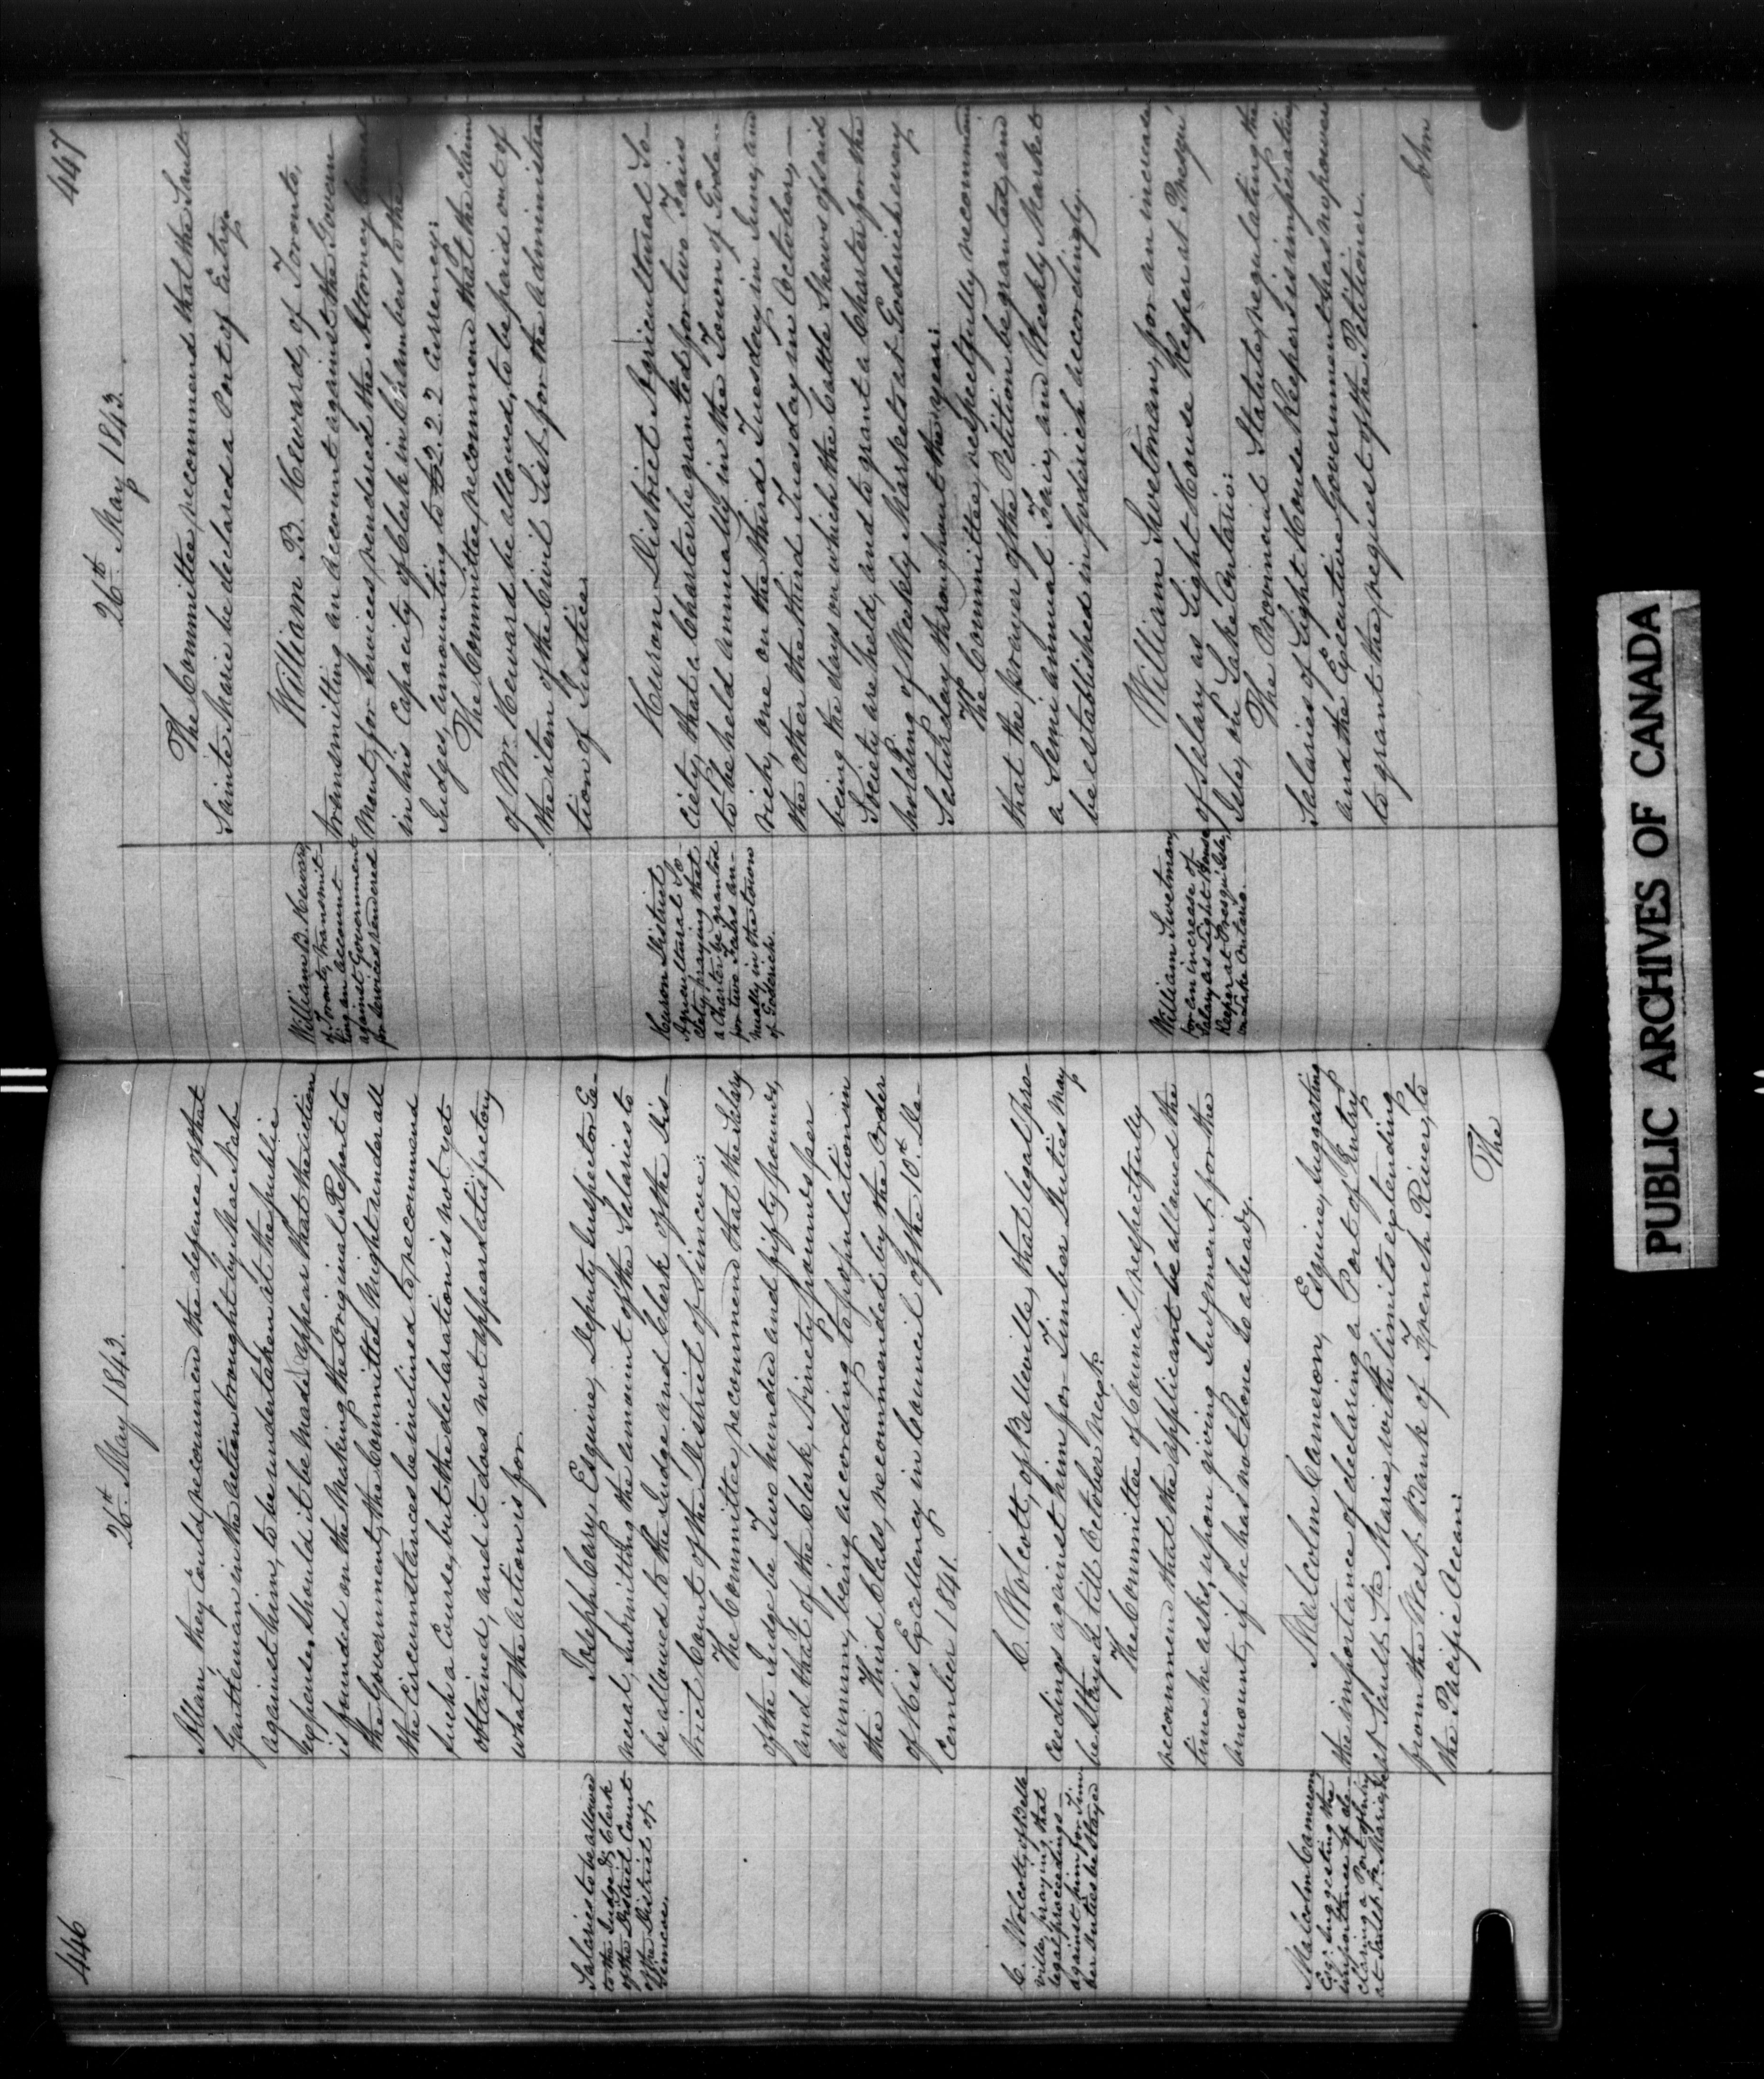 446
26th May 1843.
Allan they could recommend the defence of that
Gentleman in the action brought by MacNab
against him, to be undertaken at the public
expense, should it be made appear that the action
is founded on the Making the original Report to
the Government, the Committee might under all
the Circumstances be inclined to recommend
such a Course, but the declaration is not yet
obtained, and it does not appear satisfactory
what the action is for.
Salaries to be allowed
to the Judge & Clerk
of the District Court
of the District of
Simcoe.
Joseph Cary, Esquire, Deputy Inspector Ge-
neral, submitting the amount of the Salaries to
be allowed to the Judge and Clerk of the Dis-
trict Court of the District of Simcoe:
The Committee recommend that the Salary
of the Judge be Two hundred and fifty pounds,
and that of the Clerk, Ninety pounds per
annum, being according to population in
the Third Class, recommended by the Order
of His Excellency in Council of the 10th De-
cember 1841.
C. Wolcott, of Belle
ville, praying that
legal proceedings
against him for Tim-
ber duties be stayed
C. Wolcott, of Belleville, that legal pro-
ceedings against him for Timber Duties may
be stayed till October next:
The Committee of Council respectfully
recommend that the applicant be allowed the
time he asks, upon giving Judgment for the
amount, if he has not done so already.
Malcolm Cameron,
Esqr. suggesting the
importance of de-
claring a Port of Entry
at Sault Ste Marie, &c
Malcolm Cameron, Esquire, suggesting
the importance of declaring a Port of Entry
at Sault Ste Marie, with limits extending
from the West Bank of French River, to
the Pacific Ocean:
The
447
26th May 1843.
The Committee recommend that the Sault
Sainte Marie be declared a Port of Entry.
William B. Heward,
of Toronto, transmit-
ting an account
against Government
for services rendered
William B. Heward, of Toronto,
transmitting an account against the Govern-
ment, for Services rendered the Attorney General
in his Capacity of Clerk in Chambers to the
Judges, amounting to £2.2.2 currency:
The Committee recommend that the claim
of Mr. Heward be allowed, to be paid out of
the item of the Civil List for the administra
tion of Justice.
Huron District
Agricultural So-
ciety, praying that
a Charter be granted
for two Fairs an-
nually in the town
of Goderich.
Huron District Agricultural So-
ciety, that a Charter be granted for two Fairs
to be held annually in the Town of Gode-
rich, one on the third Tuesday in June, and
the other the third Tuesday in October,—
being the days on which the Cattle Shews of said
Society are held, and to grant a Charter for the
holding of Weekly Markets at Goderich every
Saturday throughout the year:
The Committee, respectfully recommend
that the prayer of the Petition be granted, and
a Semi annual Fair, and Weekly Market
be established in Goderich accordingly.
William Swetman,
for an increase of
Salary as Light House
Keeper at Presqu'Isle,
on Lake Ontario.
William Swetman, for an increase
of Salary as Light House Keeper at Presqu'
Isle, on Lake Ontario:
The Provincial Statute, regulating the
Salaries of Light House Keepers is imperative,
and the Executive Government has no power
to grant the request of the Petitioner.
John
PUBLIC ARCHIVES OF CANADA